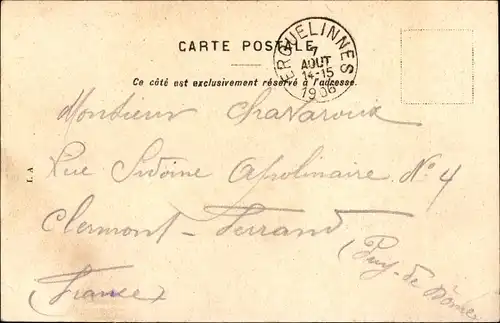 CARTE POSTALE
ERQUELINNES
7
AOUT
14-15
1906
Ce côté est exclusivement réservé à l'adresse.
Monsieur Chavaroux
Rue Sidoine Apolinaire N° 4
Clermont-Ferrand
(Puy-de Dôme)
(France)
L.A